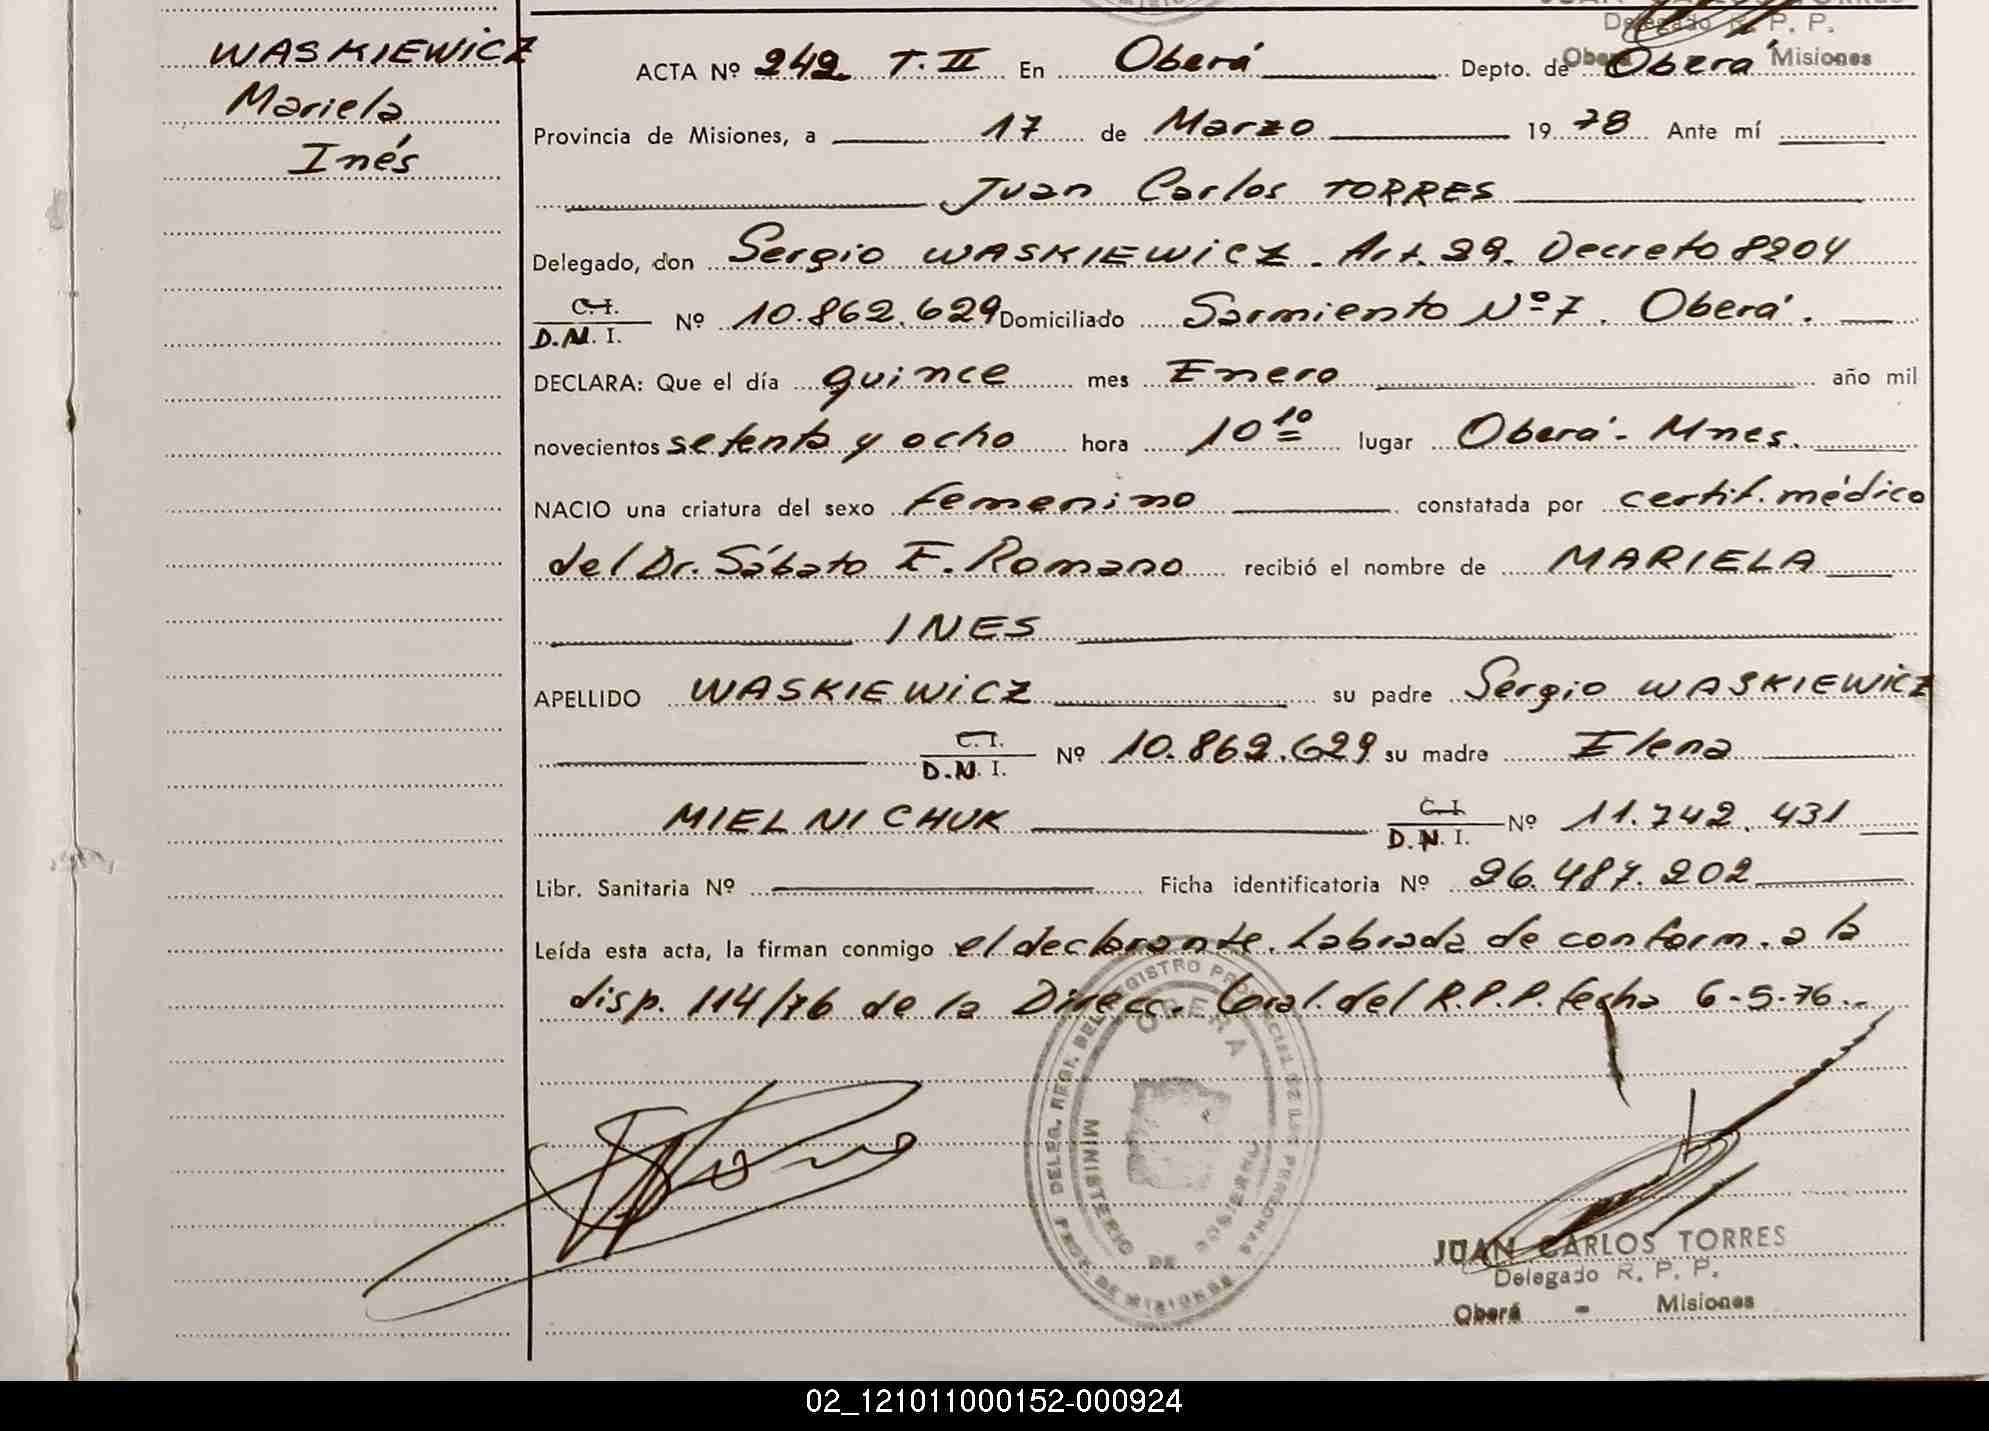 JUAN CARLOS TORRES
Delegado R. P. P.
Oberá Misiones
WASKIEWICZ
Mariela
Inés
ACTA Nº 242 T. II En Oberá Depto. de Oberá
Provincia de Misiones, a 17 de Marzo 1978 Ante mí
Juan Carlos TORRES
Delegado, don Sergio WASKIEWICZ. Art. 29. Decreto 8204
C.I. D.N.I. Nº 10.862.629 Domiciliado Sarmiento Nº 7. Oberá.
DECLARA: Que el día quince mes Enero año mil
novecientos setenta y ocho hora 10 10 lugar Oberá - Mnes.
NACIO una criatura del sexo femenino constatada por certif. médico
del Dr. Sábato F. Romano recibió el nombre de MARIELA
INES
APELLIDO WASKIEWICZ su padre Sergio WASKIEWICZ
C.I. D.N.I. Nº 10.862.629 su madre Elena
MIELNICHUK C.I. D.N.I. Nº 11.742.431
Libr. Sanitaria Nº Ficha identificatoria Nº 26.487.202
Leída esta acta, la firman conmigo el declarante. Labrada de conform. a la
disp. 114/76 de la Direcc. Gral. del R.P.P. fecha 6-5-76.-
OBERA
MINISTERIO DE GOBIERNO
PROV. DE MISIONES
JUAN CARLOS TORRES
Delegado R. P. P.
Oberá - Misiones
02_121011000152-000924